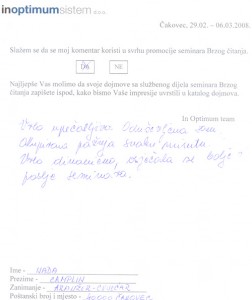 inoptimumsistem d.o.o.
Čakovec, 29.02. – 06.03.2008.
Slažem se da se moj komentar koristi u svrhu promocije seminara Brzog čitanja.
DA NE
Najljepše Vas molimo da svoje dojmove sa službenog dijela seminara Brzog
čitanja zapišete ispod, kako bismo Vaše impresije uvrstili u katalog dojmova.
In Optimum team
Vrlo
pažnja svaku minutu
Vrlo dinamično, osjećala se bolje
poslije seminara.
Ime - NADA
Prezime -
Zanimanje -
Poštanski broj i mjesto - 40000 ČAKOVEC